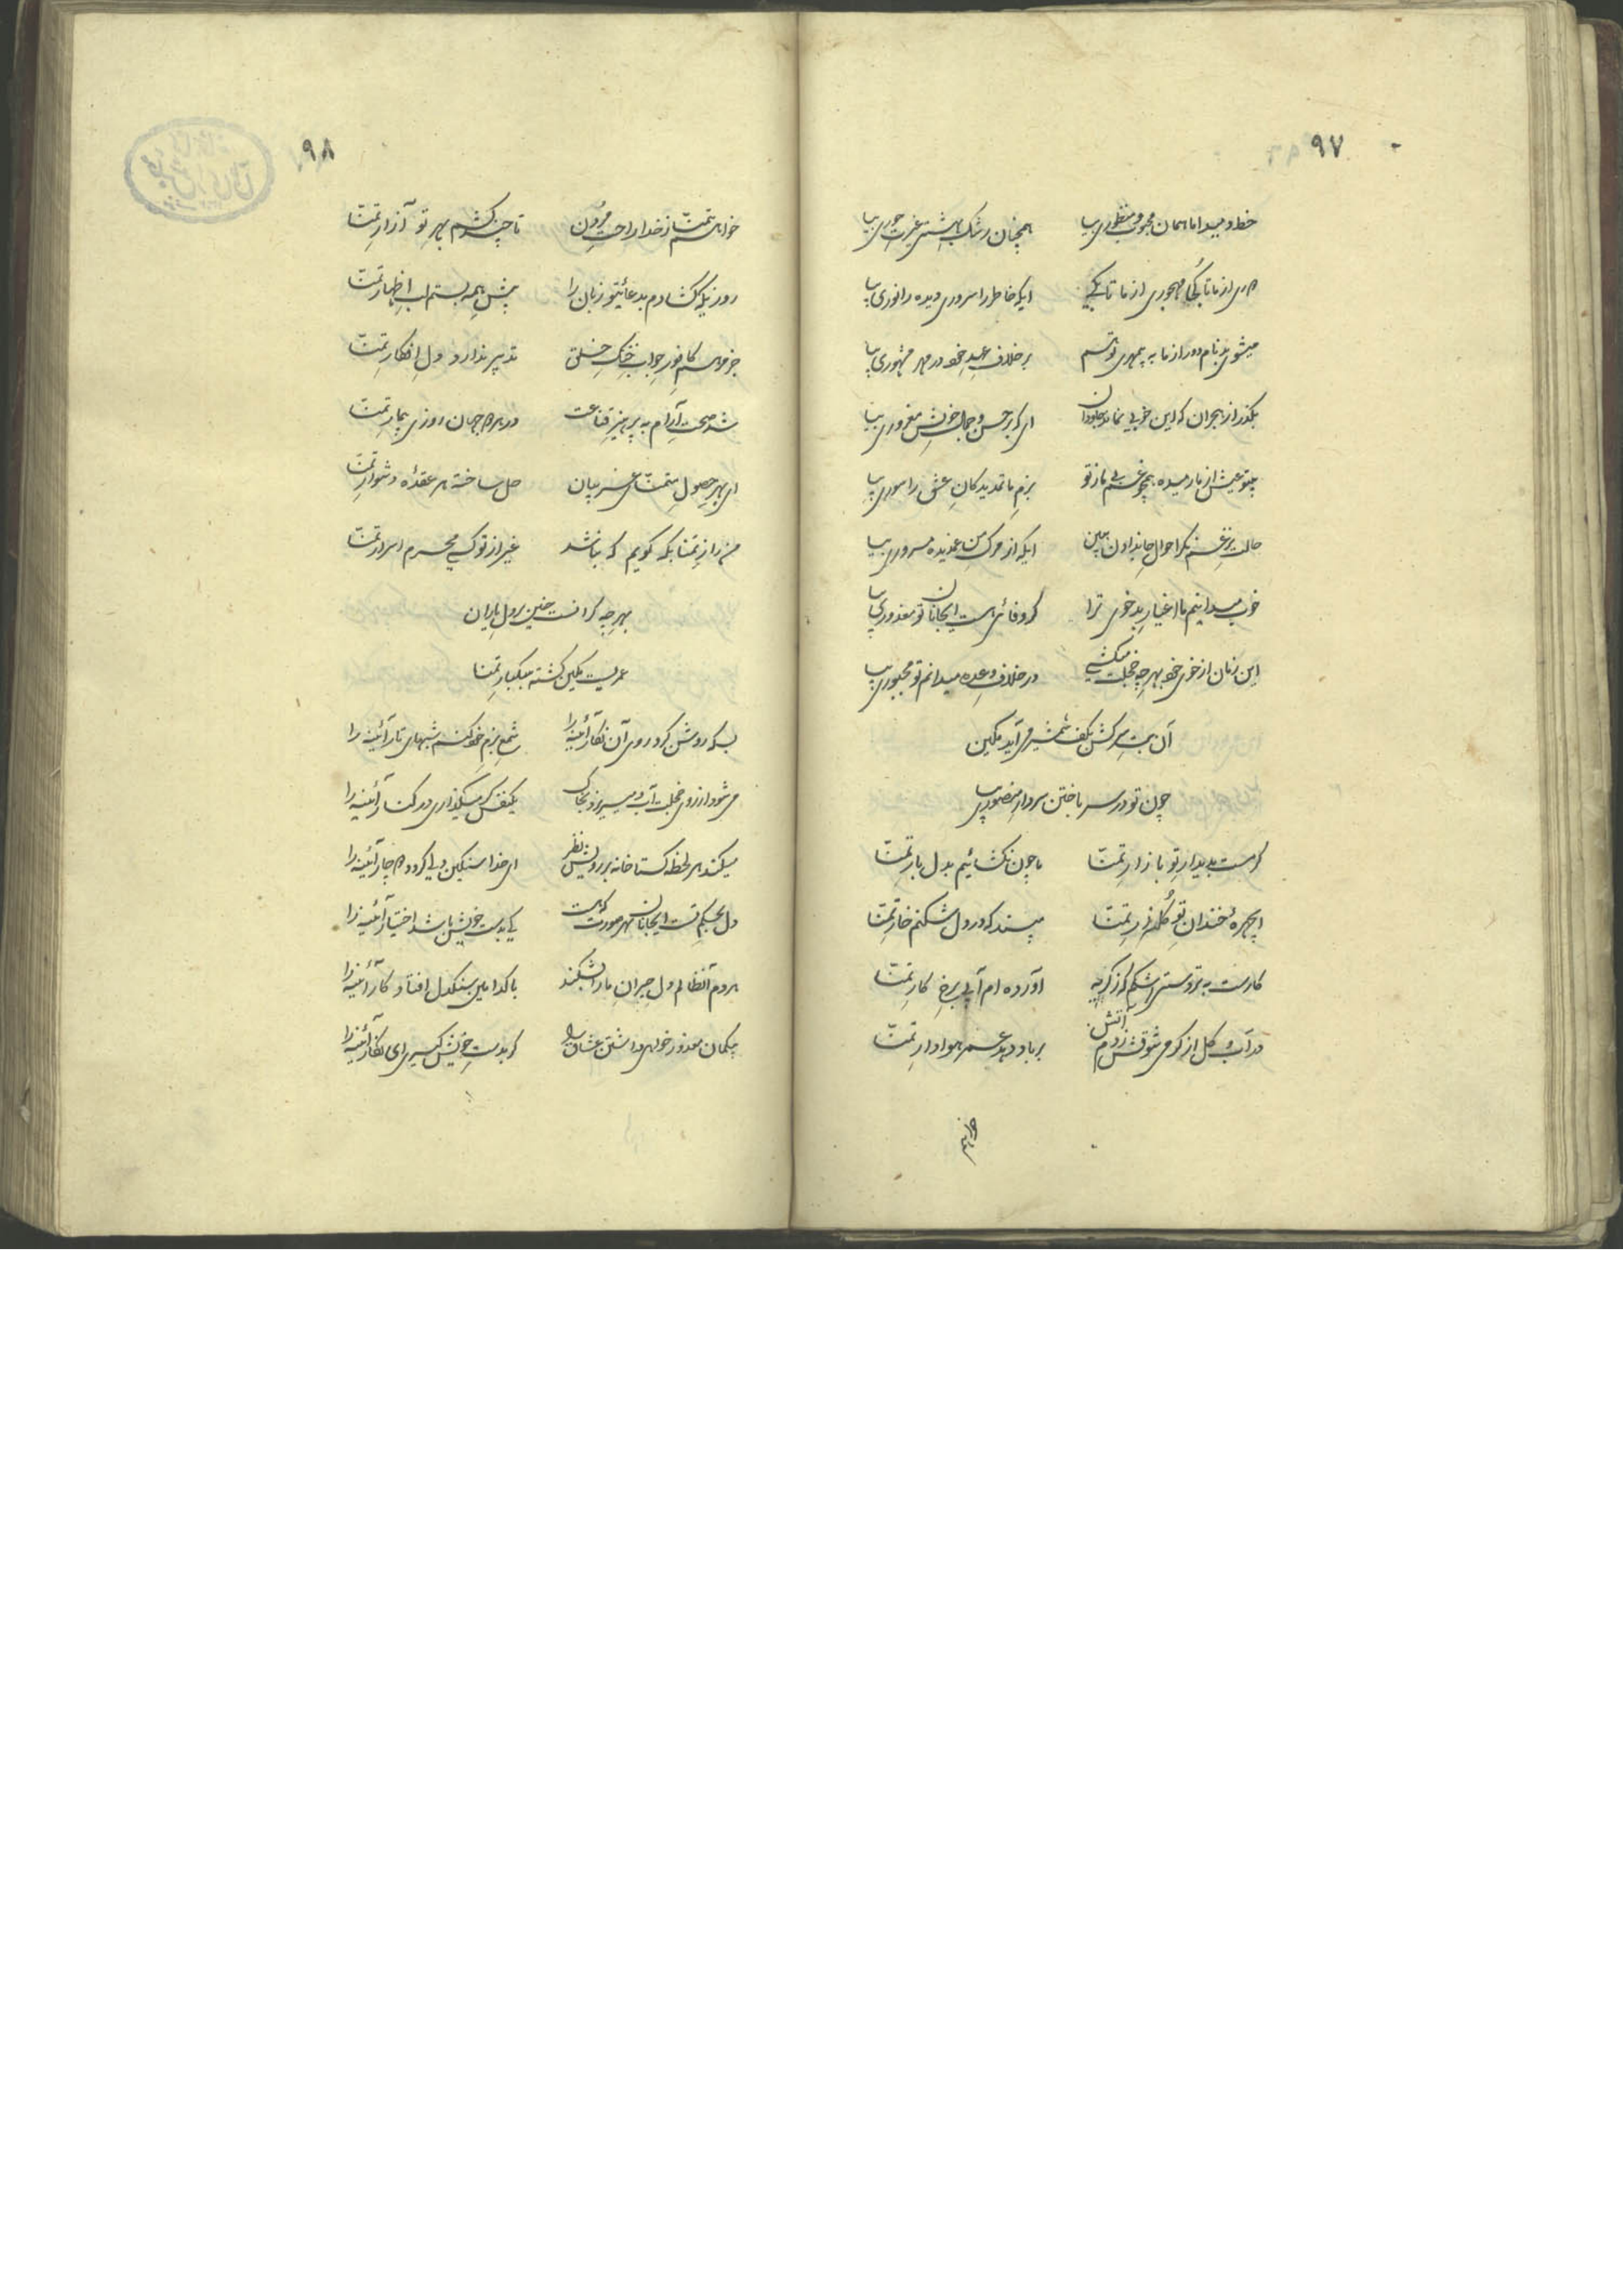 ۹۷
خط دمید اما همان محبوب و منظوری بیا همچنان رشک بهشتی غیرت حوری بیا
دوری از ما تا کجا مهجوری از ما تا بکی ایکه خاطر را سروری دیده را نوری بیا
میشوی بدنام دور از ما به بیمهری برخلاف عهد خود در مهر مشهوری بیا
بگذر از هجران که این خوبی نماند جاودان ای که بر حسن و جمال خویش مغروری بیا
بیتو عیش از ما رمیده همچو بزم ماتم دیدگان عشق را سوری بیا
حالت احوال جاندادن ببین ایکه از مرگ من غمدیده مسروری بیا
خوب میدانیم ما اغیار بدخوی ترا گر وفائی هست ایجانان تو معذوری بیا
این زمان از خوی خود بهر چه خجلت میکشی در خلاف وعده میدانم تو مجبوری بیا
آن بت سرکش بکف شمشیر می آید مکین
چون تو در سر باختن سردار منصوری بیا
گرمست به دیدار تو بازار تمنا ما چون نگشائیم بدل بار تمنا
ایچهره خندان تو گلزار تمنا مپسند که در دل شکنم خار تمنا
کارست به تردستی اشکم گر از گریه آورده ام آبی برخ کار تمنا
در آب و گل از گرمی شوقش زدم آتش بر باد دهد عمر هوادار تمنا
خواهم
۹۸
خواهم تمنا ز خدا راحت مردن تا چند کشم بهر تو آزار تمنا
روزیکه گشادم بدعائیتو زبان را پیش همه بستم لب اظهار تمنا
جز مرهم کافور جواب خنک تدبیر ندارد دل افگار تمنا
شد صحت آرام به پرهیز قناعت در هر دو جهان روزی بیمار تمنا
ای بهر حصول متمنای غریبان حل ساخته هر عقده دشوار تمنا
من راز تمنا بکه گویم که نباشد غیر از تو کسی محرم اسرار تمنا
بهر چه گرانست چنین بر دل یاران
عمریست مکین گشته سبکبار تمنا
بسکه روشن کرد روی آن نگار آئینه را شمع بزم خود کنم شبهای تار آئینه را
می شود از روی خجلت آب و میریزد بخاک یکنفس گر میگذاری در کنار آئینه را
میکند هر لحظه گستاخانه بر رویش نظر ای خدا سنگین دلی گردد دچار آئینه را
دل بحکم تست ایجانان بهر صورت که هست کی بدست خویش باشد اختیار آئینه را
هر دم آنظالم دل حیران ما را بشکند با کدامین سنگدل افتاد کار آئینه را
بیگمان معذور خواهی داشتن عشاق را گر بدست خویش گیری ای نگار آئینه را